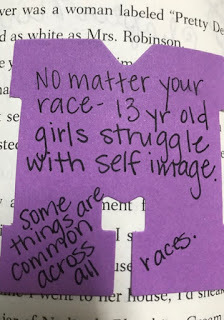 ver was a woman labeled "Pretty Be
as white as Mrs. Robinson.
No matter your
race- 13 yr old
girls struggle
with self image.
Some
things are
common
across
all
races.
ment f
I s
use
I went to her house, I'd snea